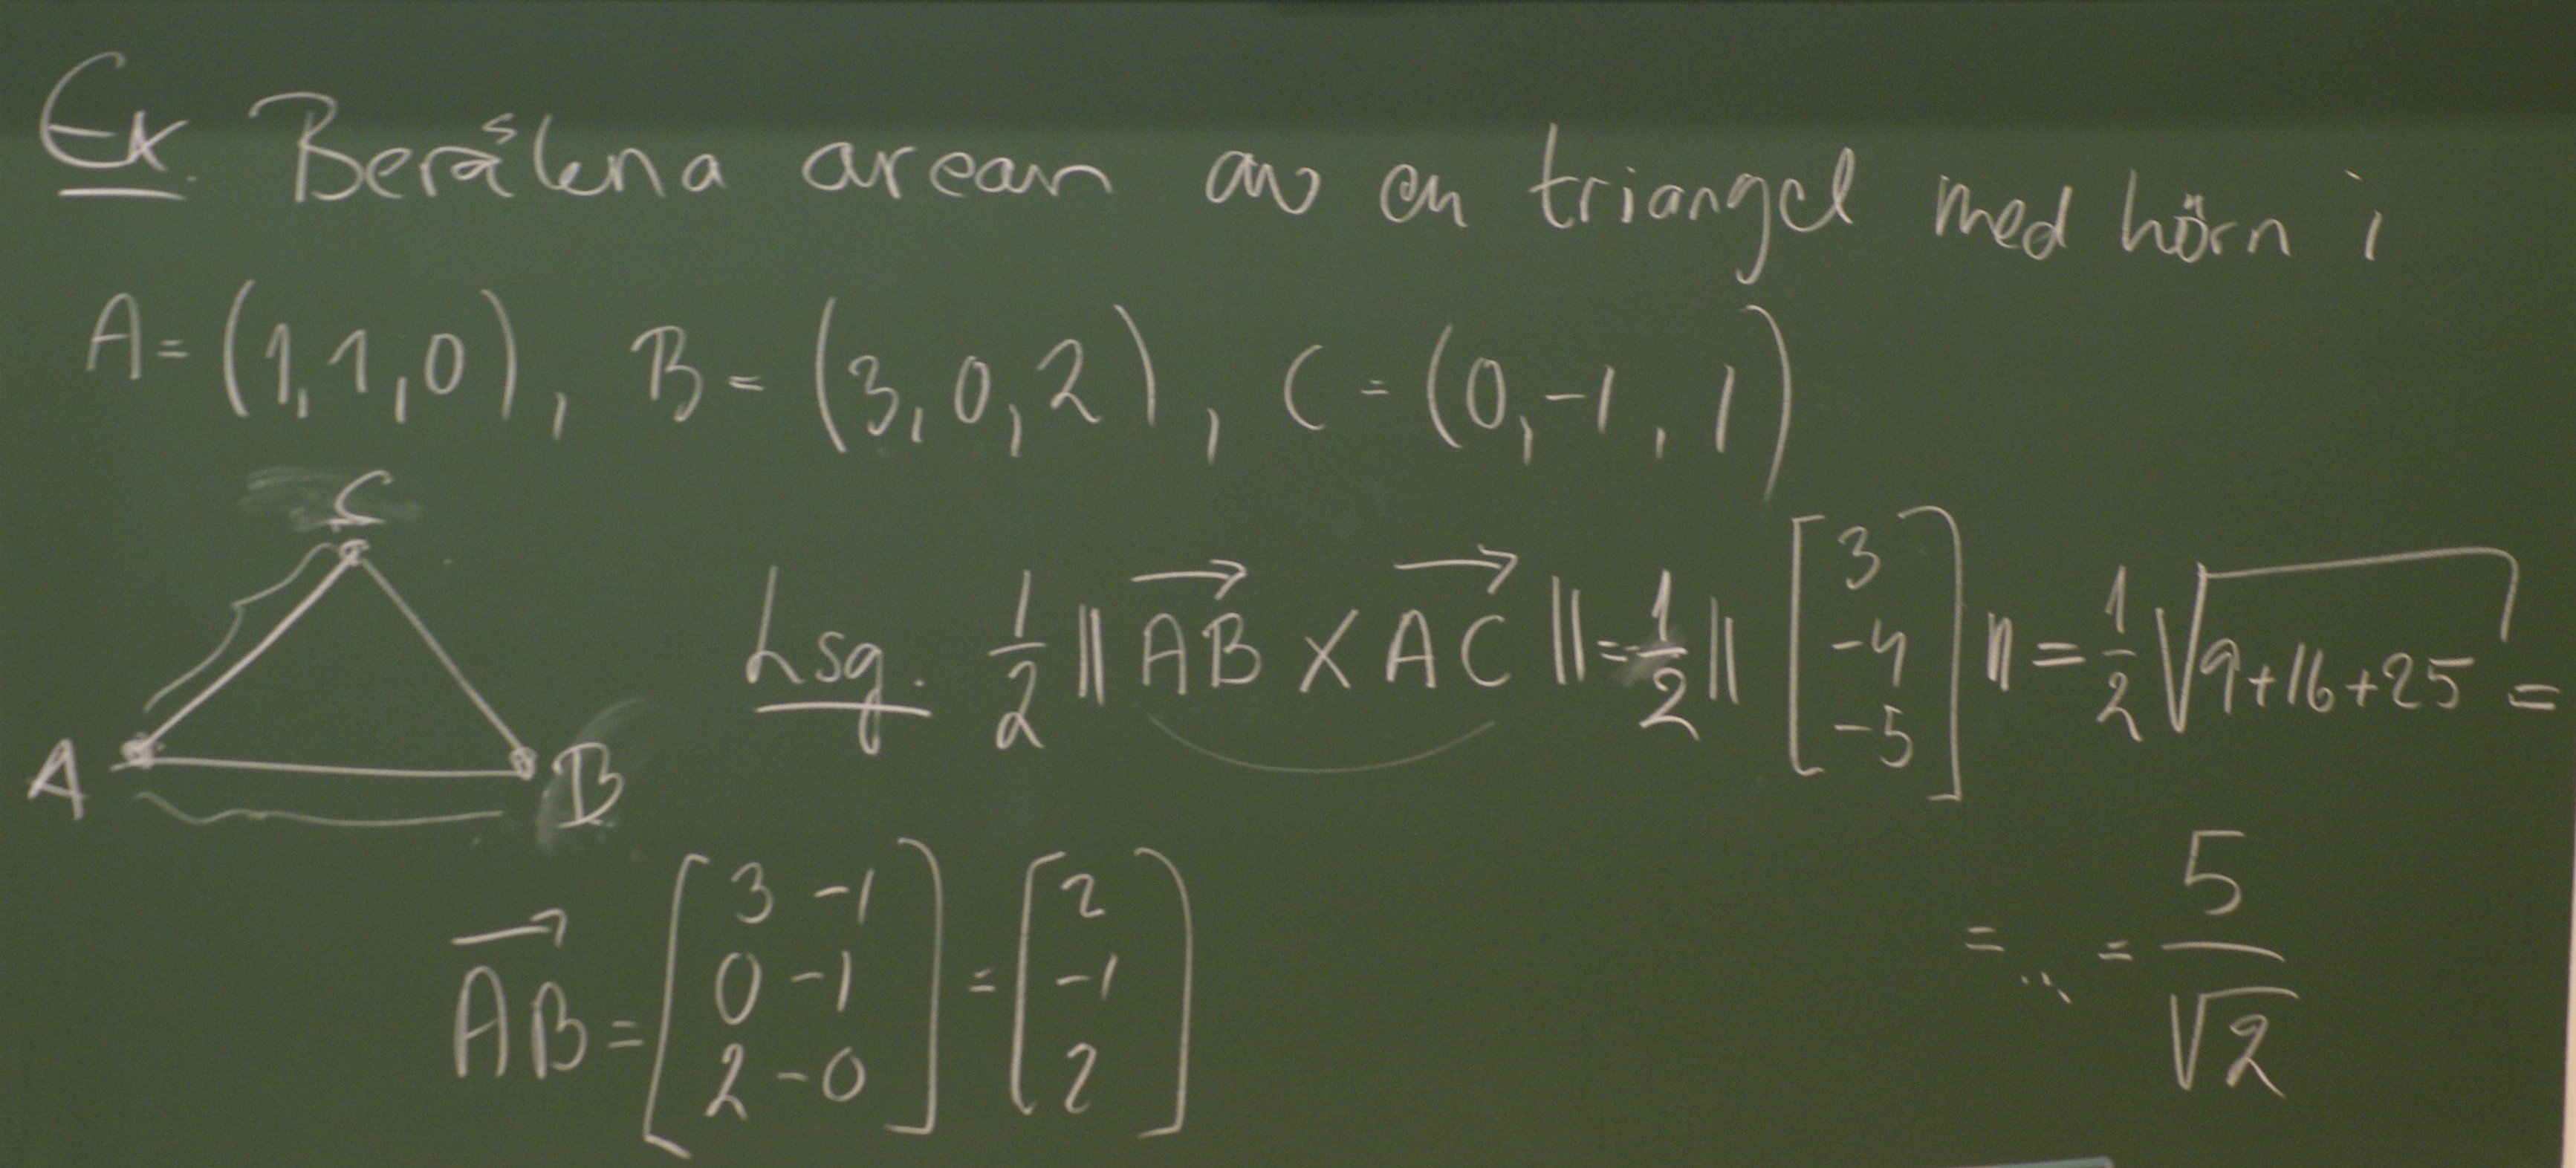 Ex. Beräkna arean av en triangel med hörn i
A = (1,1,0), B = (3,0,2), C = (0,-1,1)
C
A
B
Lsg. 1/2 || AB→ × AC→ || = 1/2 || [3 -4 -5] || = 1/2 √(9+16+25) =
= ... = 5/√2
AB→ = [3-1 0-1 2-0] = [2 -1 2]